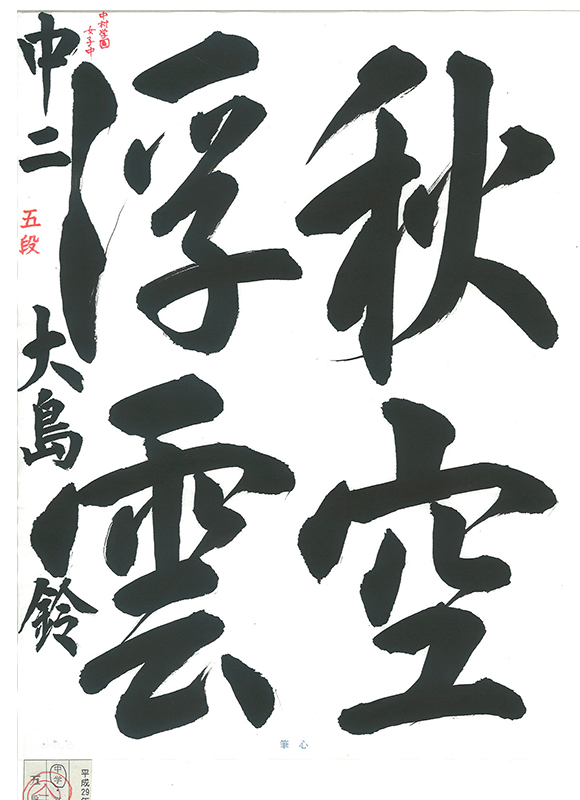 秋空
浮雲
中村学園
女子中
中二 五段 大島 鈴
心筆
平成29年
中学
五